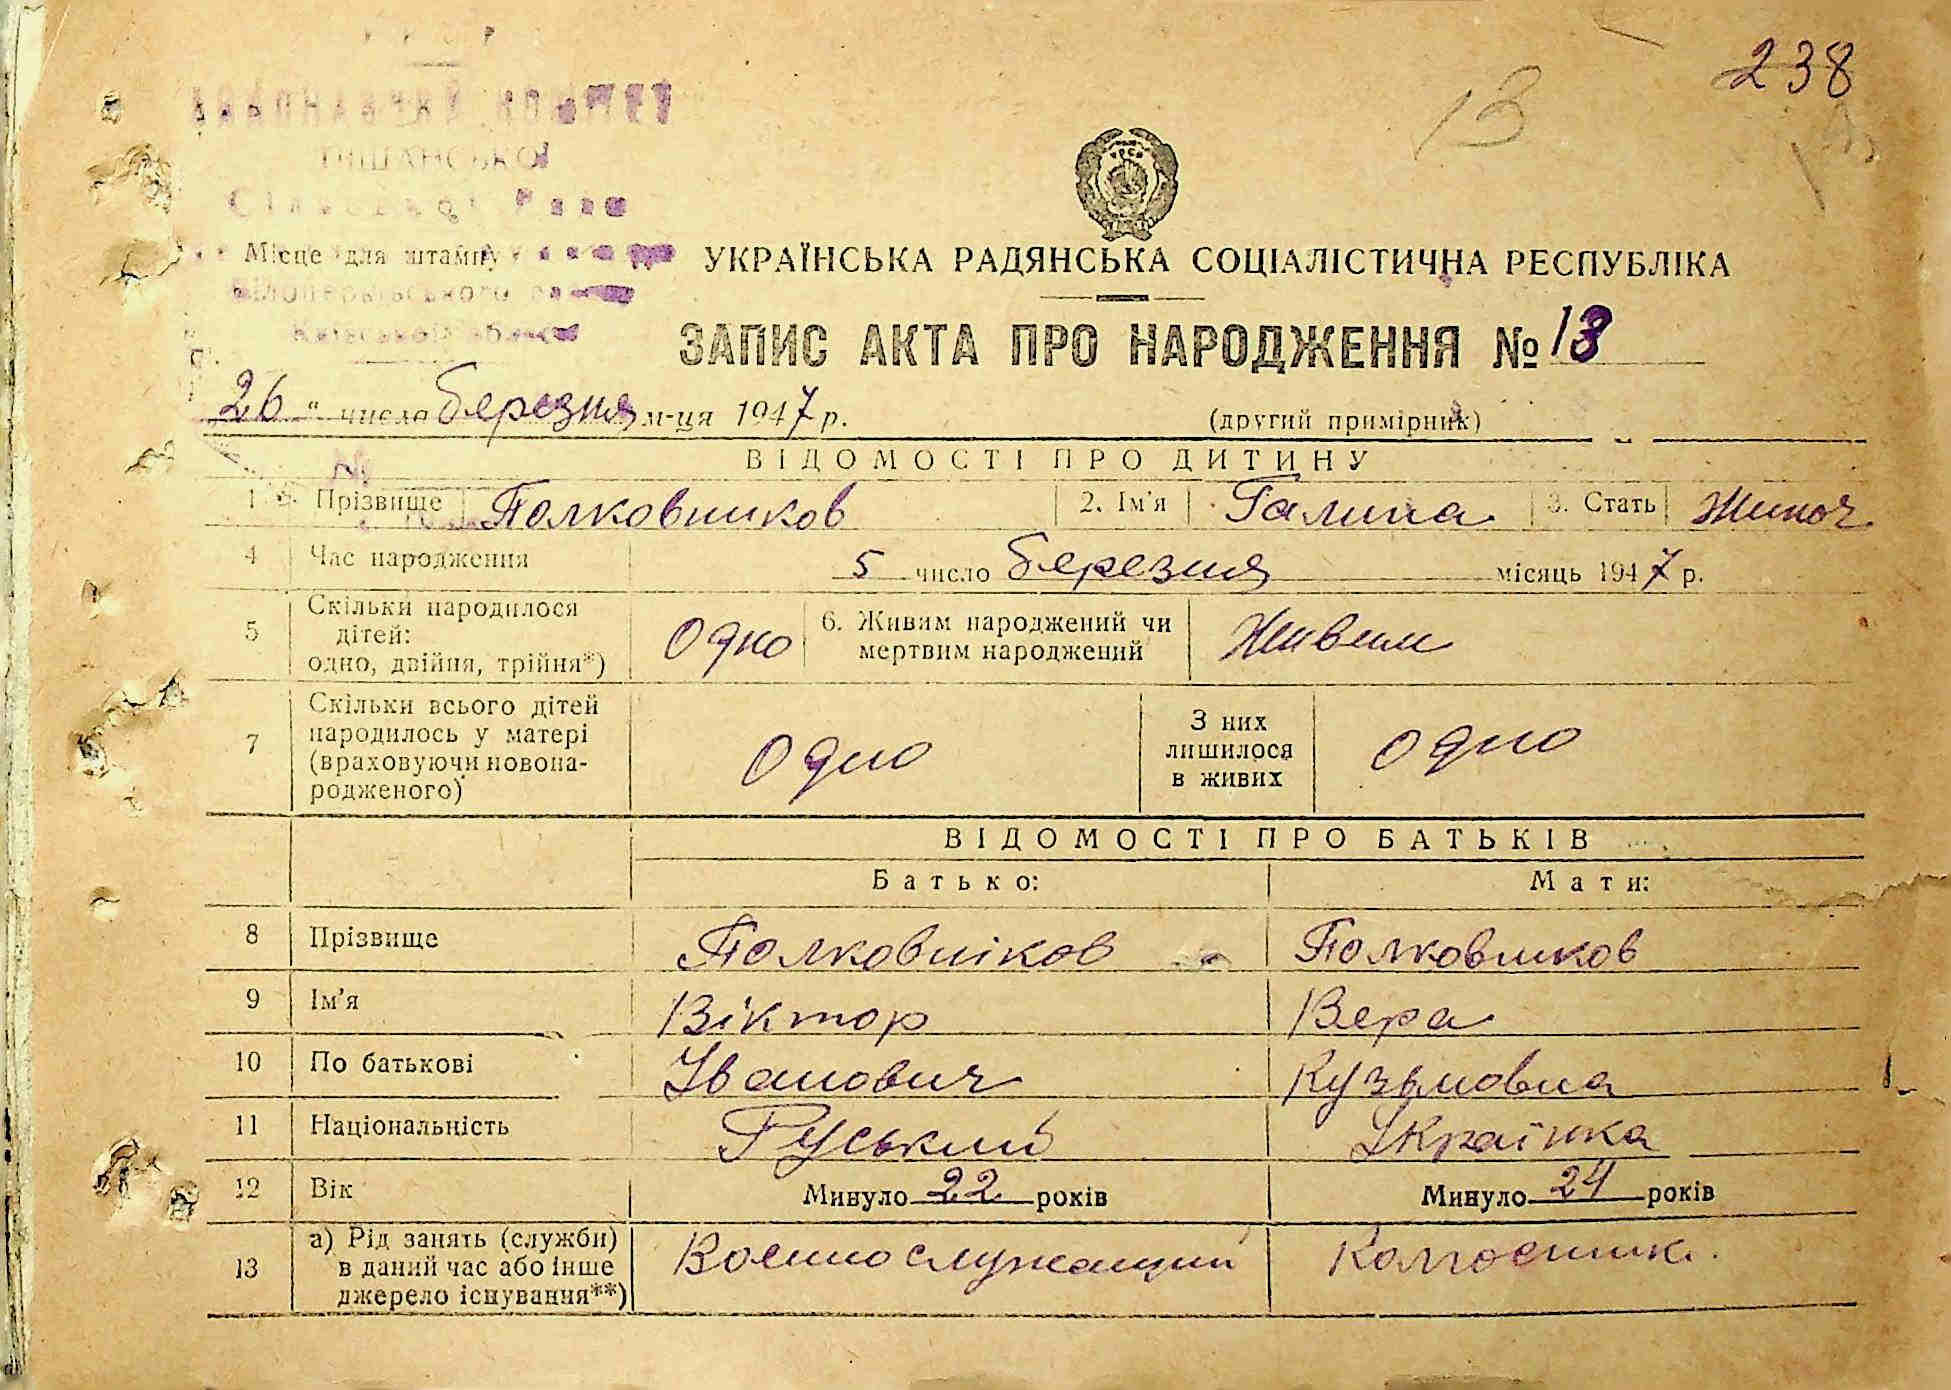 238
13
УРСР
ТИШАНСЬКОЇ
Місце для штампу
Білоцерківського
Київської області
УКРАЇНСЬКА РАДЯНСЬКА СОЦІАЛІСТИЧНА РЕСПУБЛІКА
ЗАПИС АКТА ПРО НАРОДЖЕННЯ № 13
26 " число березня м-ця 1947 р. (другий примірник)
ВІДОМОСТІ ПРО ДИТИНУ
1 Прізвище Полковников 2. Ім'я Галина 3. Стать Жиноч
4 Час народження 5 число березня місяць 1947 р.
5 Скільки народилося дітей: одно, двійня, трійня*) Одно 6. Живим народжений чи мертвим народжений Живим
7 Скільки всього дітей народилось у матері (враховуючи новонародженого) Одно З них лишилося в живих Одно
ВІДОМОСТІ ПРО БАТЬКІВ
Батько: Мати:
8 Прізвище Полковніков Полковников
9 Ім'я Віктор Вера
10 По батькові Іванович Кузьмовна
11 Національність Руський Українка
12 Вік Минуло 22 років Минуло 24 років
13 а) Рід занять (служби) в даний час або інше джерело існування**) Военнослужащий Колгоспник.